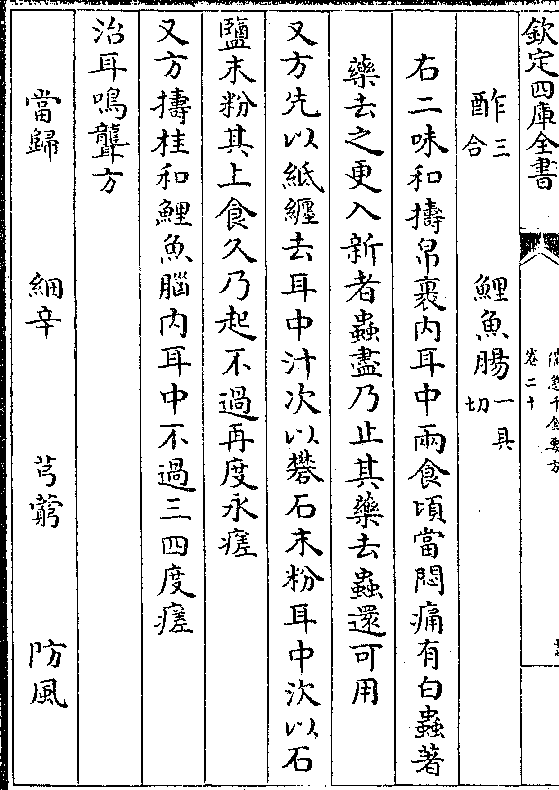 欽定四庫全書
卷二十
酢三合 鯉魚腸一具切
右二味和擣帛裹内耳中兩食頃當悶痛有白蟲著
藥去之更入新者蟲盡乃止其藥去蟲還可用
又方先以紙纒去耳中汁次以礬石末粉耳中次以石
鹽末粉其上食久乃起不過再度永瘥
又方擣桂和鯉魚腦内耳中不過三四度瘥
治耳鳴聾方
當歸 細辛 芎藭 防風